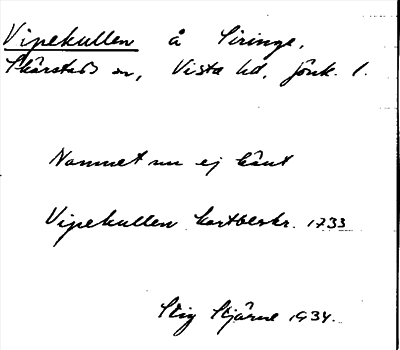 Vipekullen å Siringe,
Skärstads sn, Vista hd, Jönk. l.
Namnet nu ej känt
Vipekullen kartbeskr. 1733
Stig Stjärne 1934.